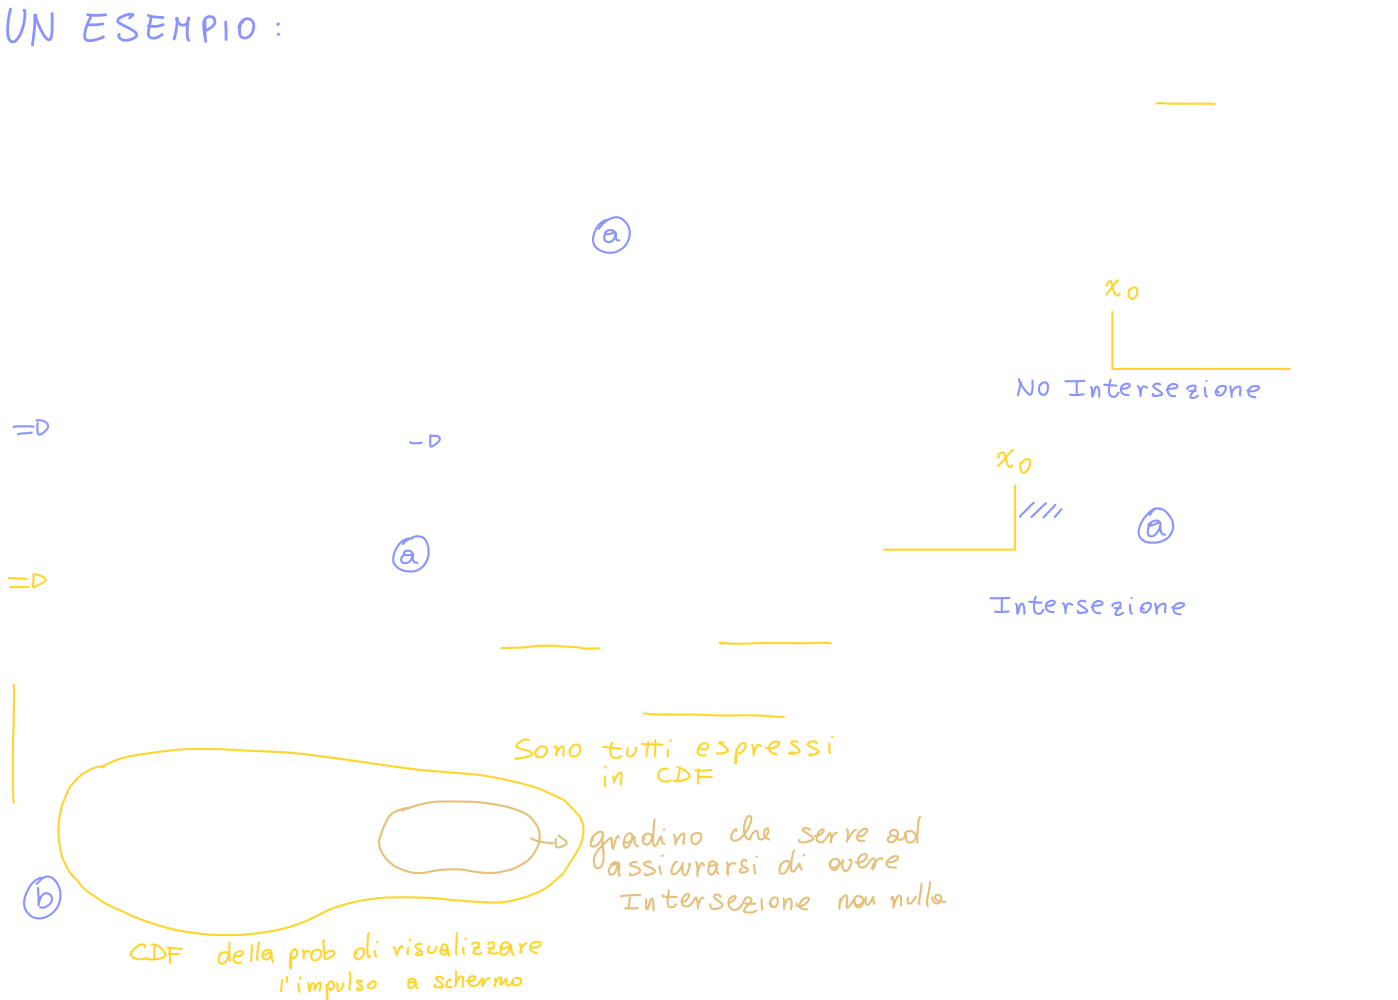 UN ESEMPIO :
a
x0
NO Intersezione
=D
-D
x0
a
a
=D
Intersezione
Sono tutti espressi
in CDF
gradino che serve ad
assicurarsi di avere
Intersezione non nulla
b
CDF della prob di visualizzare
l'impulso a schermo